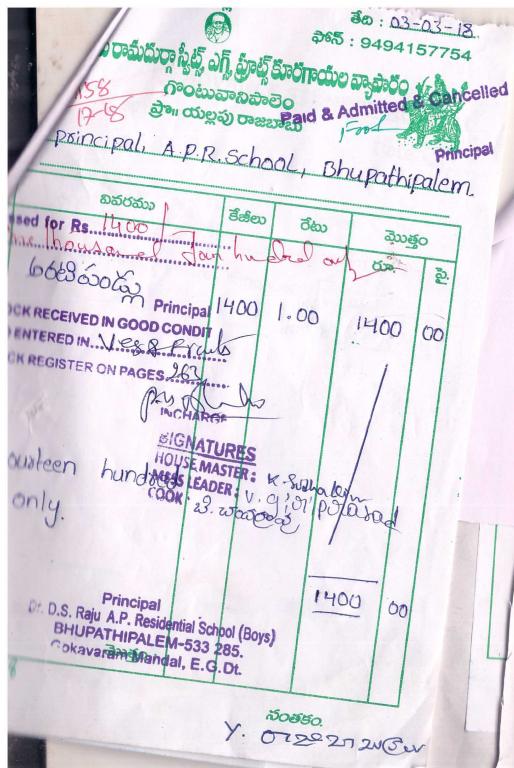 తేది : 03-03-18
ఫోన్ : 9494157754
రామదుర్గా స్వీట్స్ ఎగ్స్ ఫ్రూట్స్ కూరగాయల వ్యాపారం
గొంటువానిపాలెం
ప్రొ॥ యల్లపు రాజబాబు
158
17-18
Paid & Admitted & Cancelled
Principal
principal, A.P.R. School, Bhupathipalem.
వివరము కేజీలు రేటు మొత్తం
రూ. పై.
ssed for Rs. 1400/
thousand four hundred only
అరటిపండ్లు 1400 1.00 1400 00
Principal
OCK RECEIVED IN GOOD CONDIT
ENTERED IN Veg & Fruits
CK REGISTER ON PAGES 263
INCHARGE
SIGNATURES
HOUSE MASTER :
MESS LEADER : V. giri prasad
COOK :
ourteen hundred
only.
1400 00
Principal
Dr. D.S. Raju A.P. Residential School (Boys)
BHUPATHIPALEM-533 285.
Gokavaram Mandal, E.G.Dt.
మొత్తం
సంతకం.
Y. రాజాబాబు